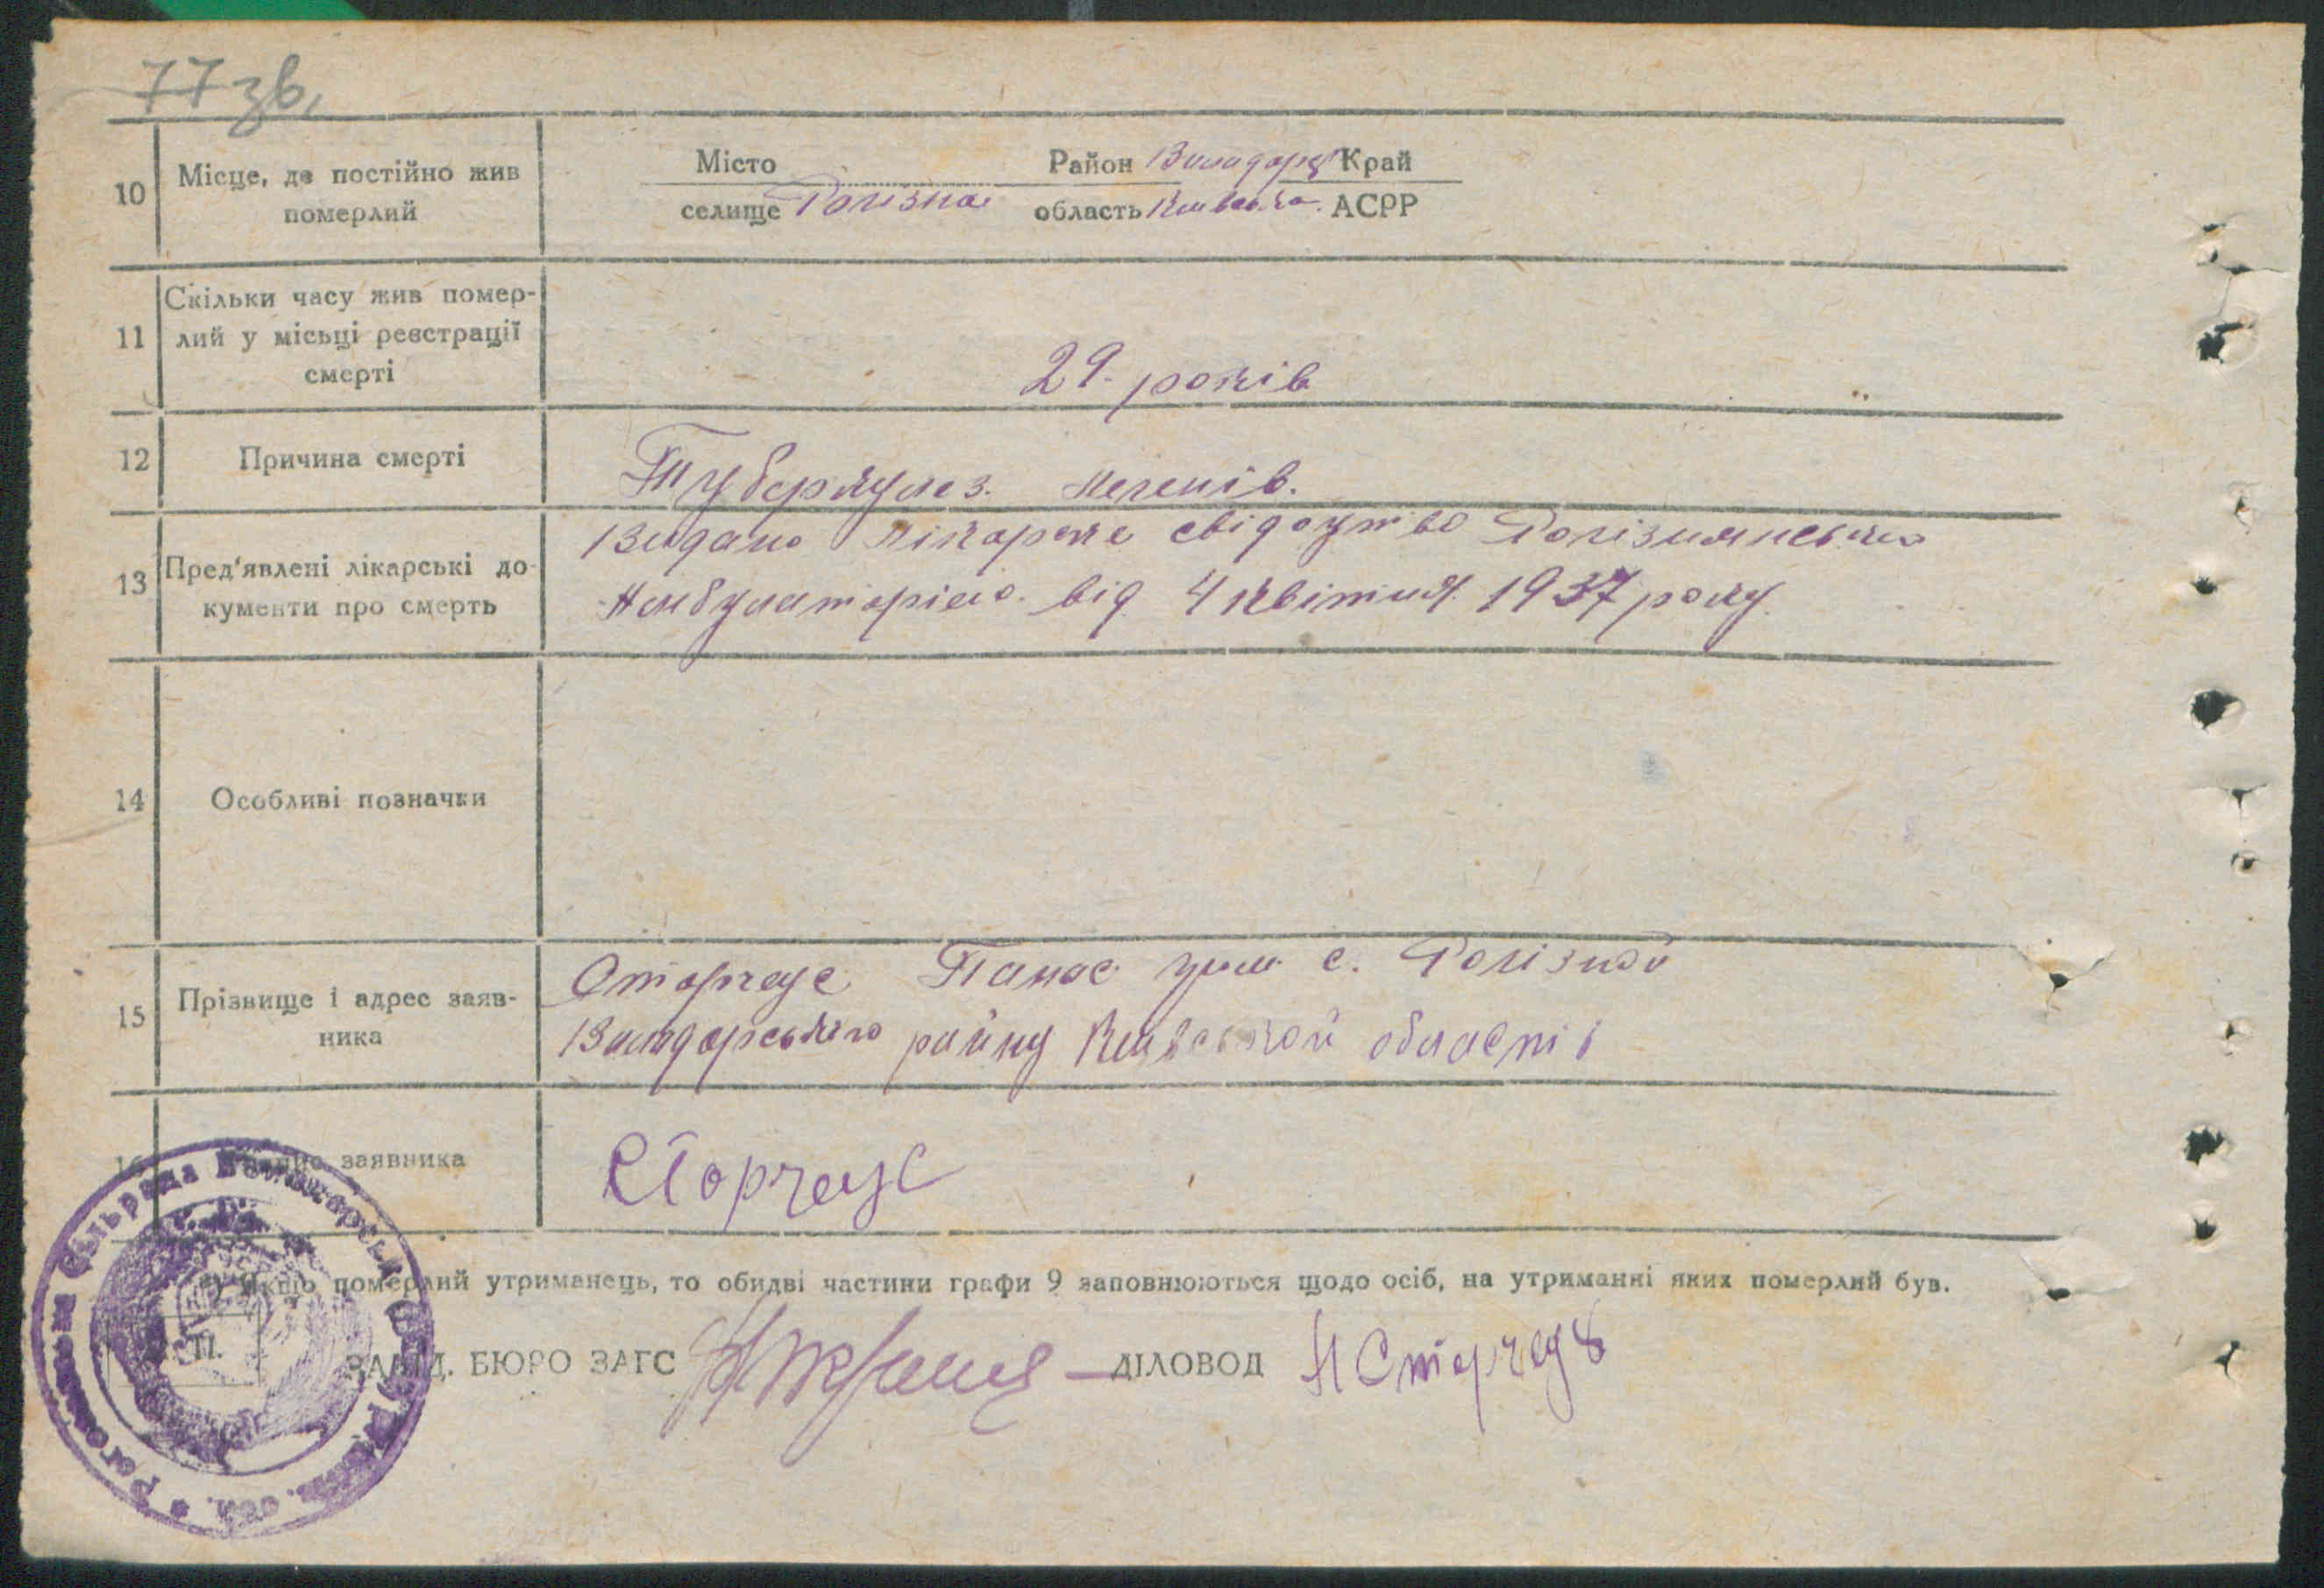 77 зв.
10 Місце, де постійно жив померлий
Місто Район Володарс Край
селище Рогізна область Київська АСРР
11 Скільки часу жив помер-
лий у місьці реєстрації
смерті
29 років
12 Причина смерті
Туберкульоз легенів.
13 Пред'явлені лікарські до-
кументи про смерть
Видано лікарске свідоцтво Рогізнянською
Амбулаторією від 4 квітня 1937 року.
14 Особливі позначки
15 Прізвище і адрес заяв-
ника
Сторчеус Панас с. Рогізной
Володарського району Київської області
16 заявника
Сторчеус
Якщо померлий утриманець, то обидві частини графи 9 заповнюються щодо осіб, на утриманні яких померлий був.
П.
ЗАВІД. БЮРО ЗАГС ДІЛОВОД
сільрада Володарськ обл.